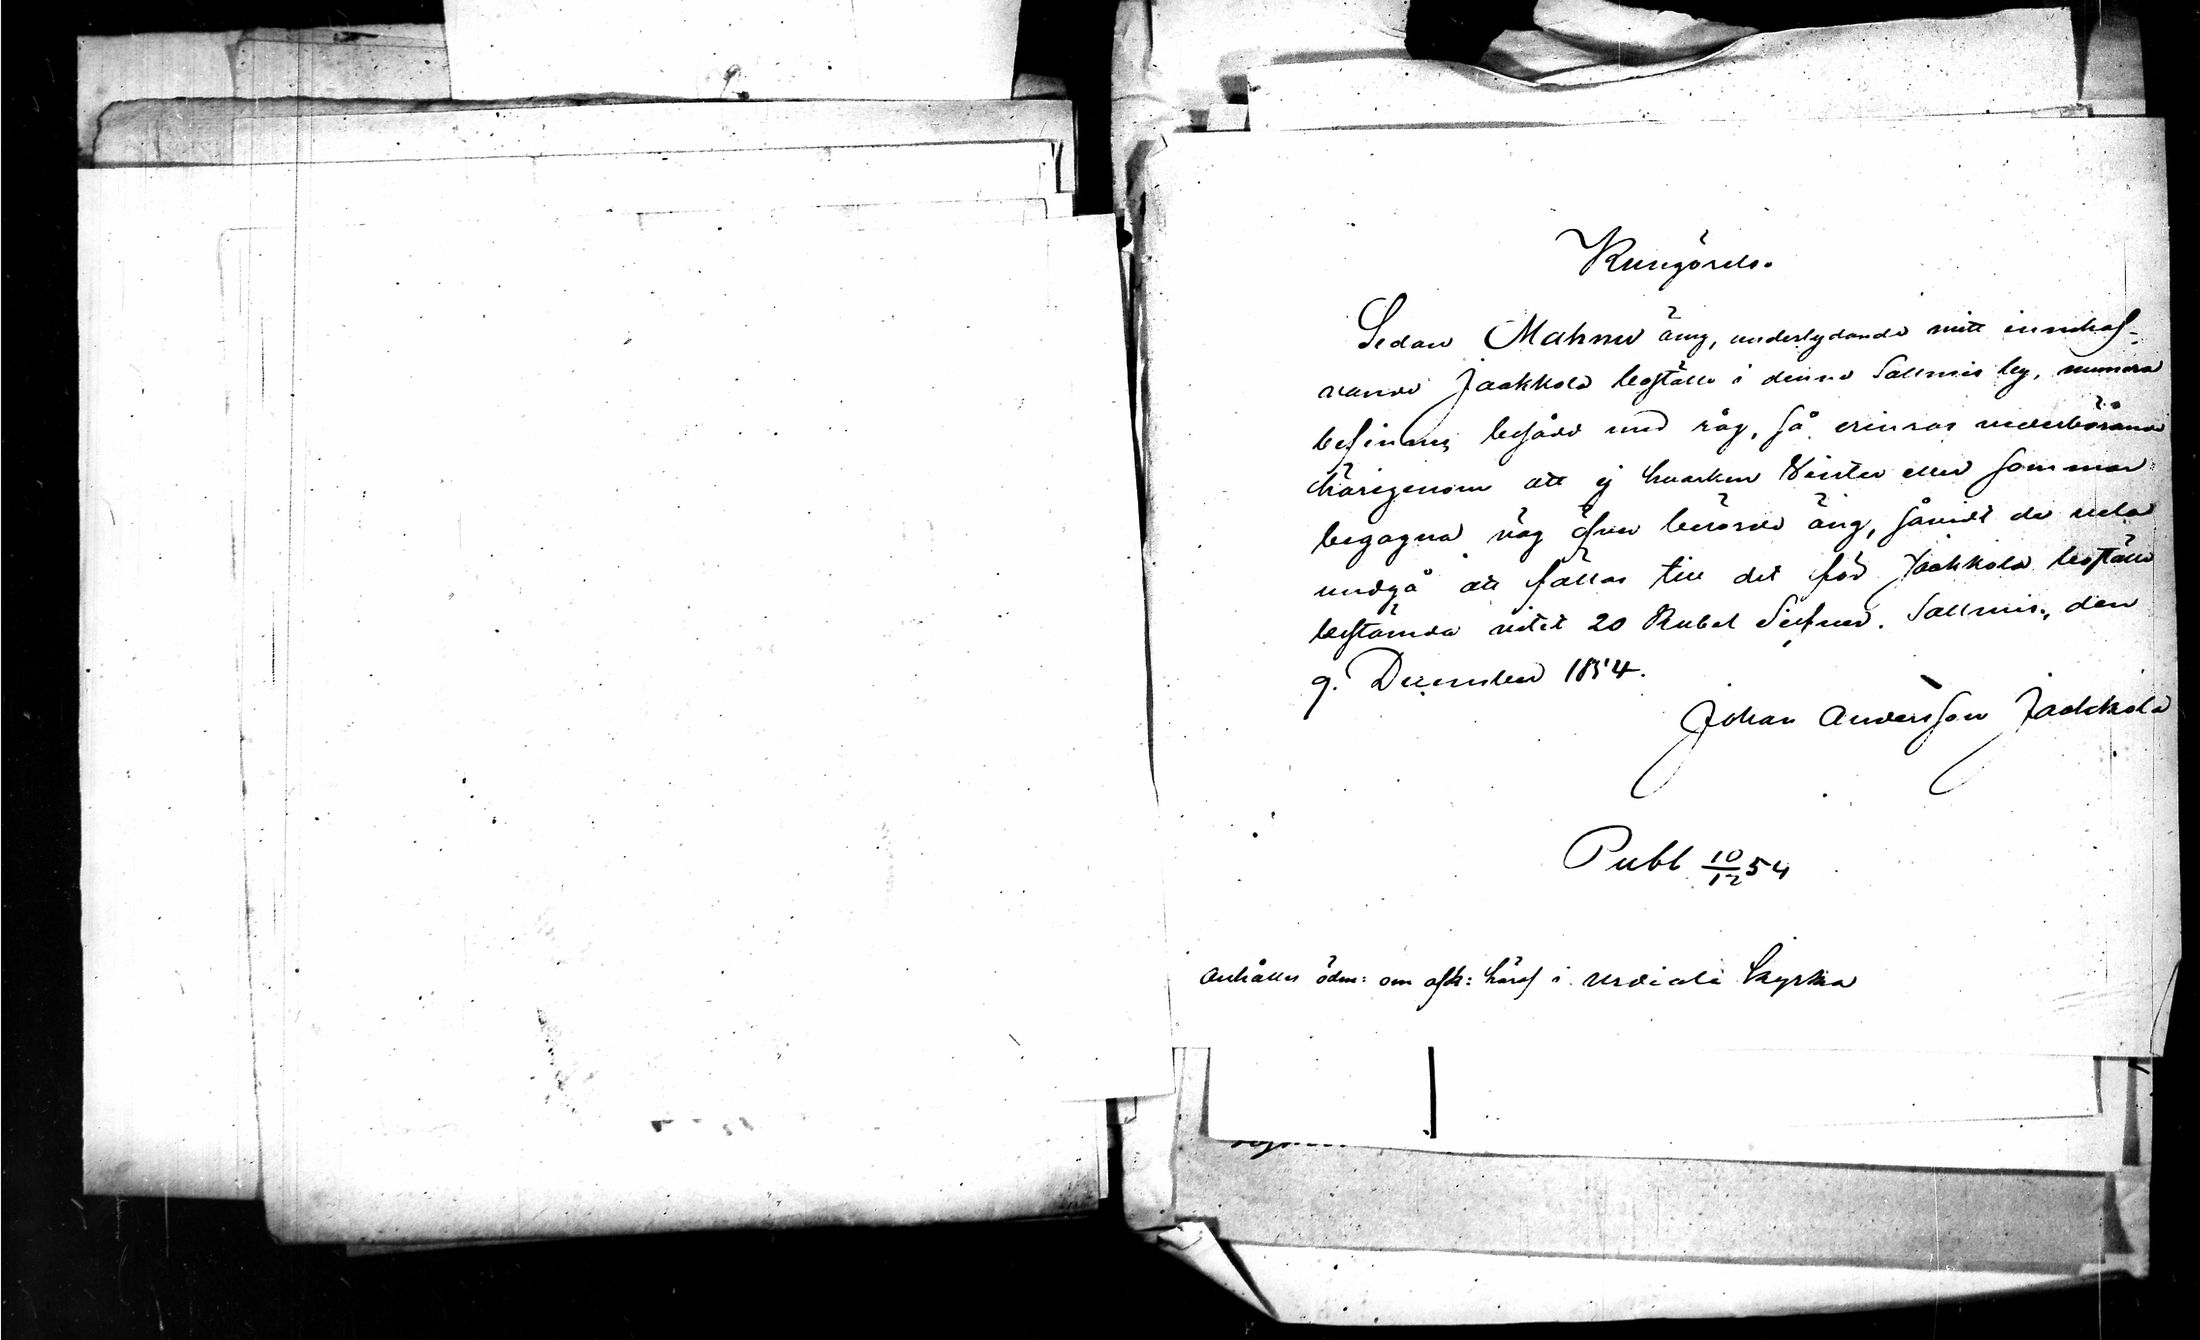 Kungörelse.
Sedan Mahnu äng, underlydande mitt innehaf-
vande Jaakkola boställe i denne Sallmis by, numera
befinnes besådd med råg, så erinras vederbörande
härigenom att ej hvarken Vinter eller sommar
begagna väg öfver berörde äng, såvidt de vela
undgå att fällas till det för Jaakkola boställe
bestämda vitet 20 Rubel Silfver. Sallmis, den
9. December 1854.
Johan Andersson Jaakkola
Publ 10/12 54
Anhålles ödm: om afk: häraf i Urdiala kyrka